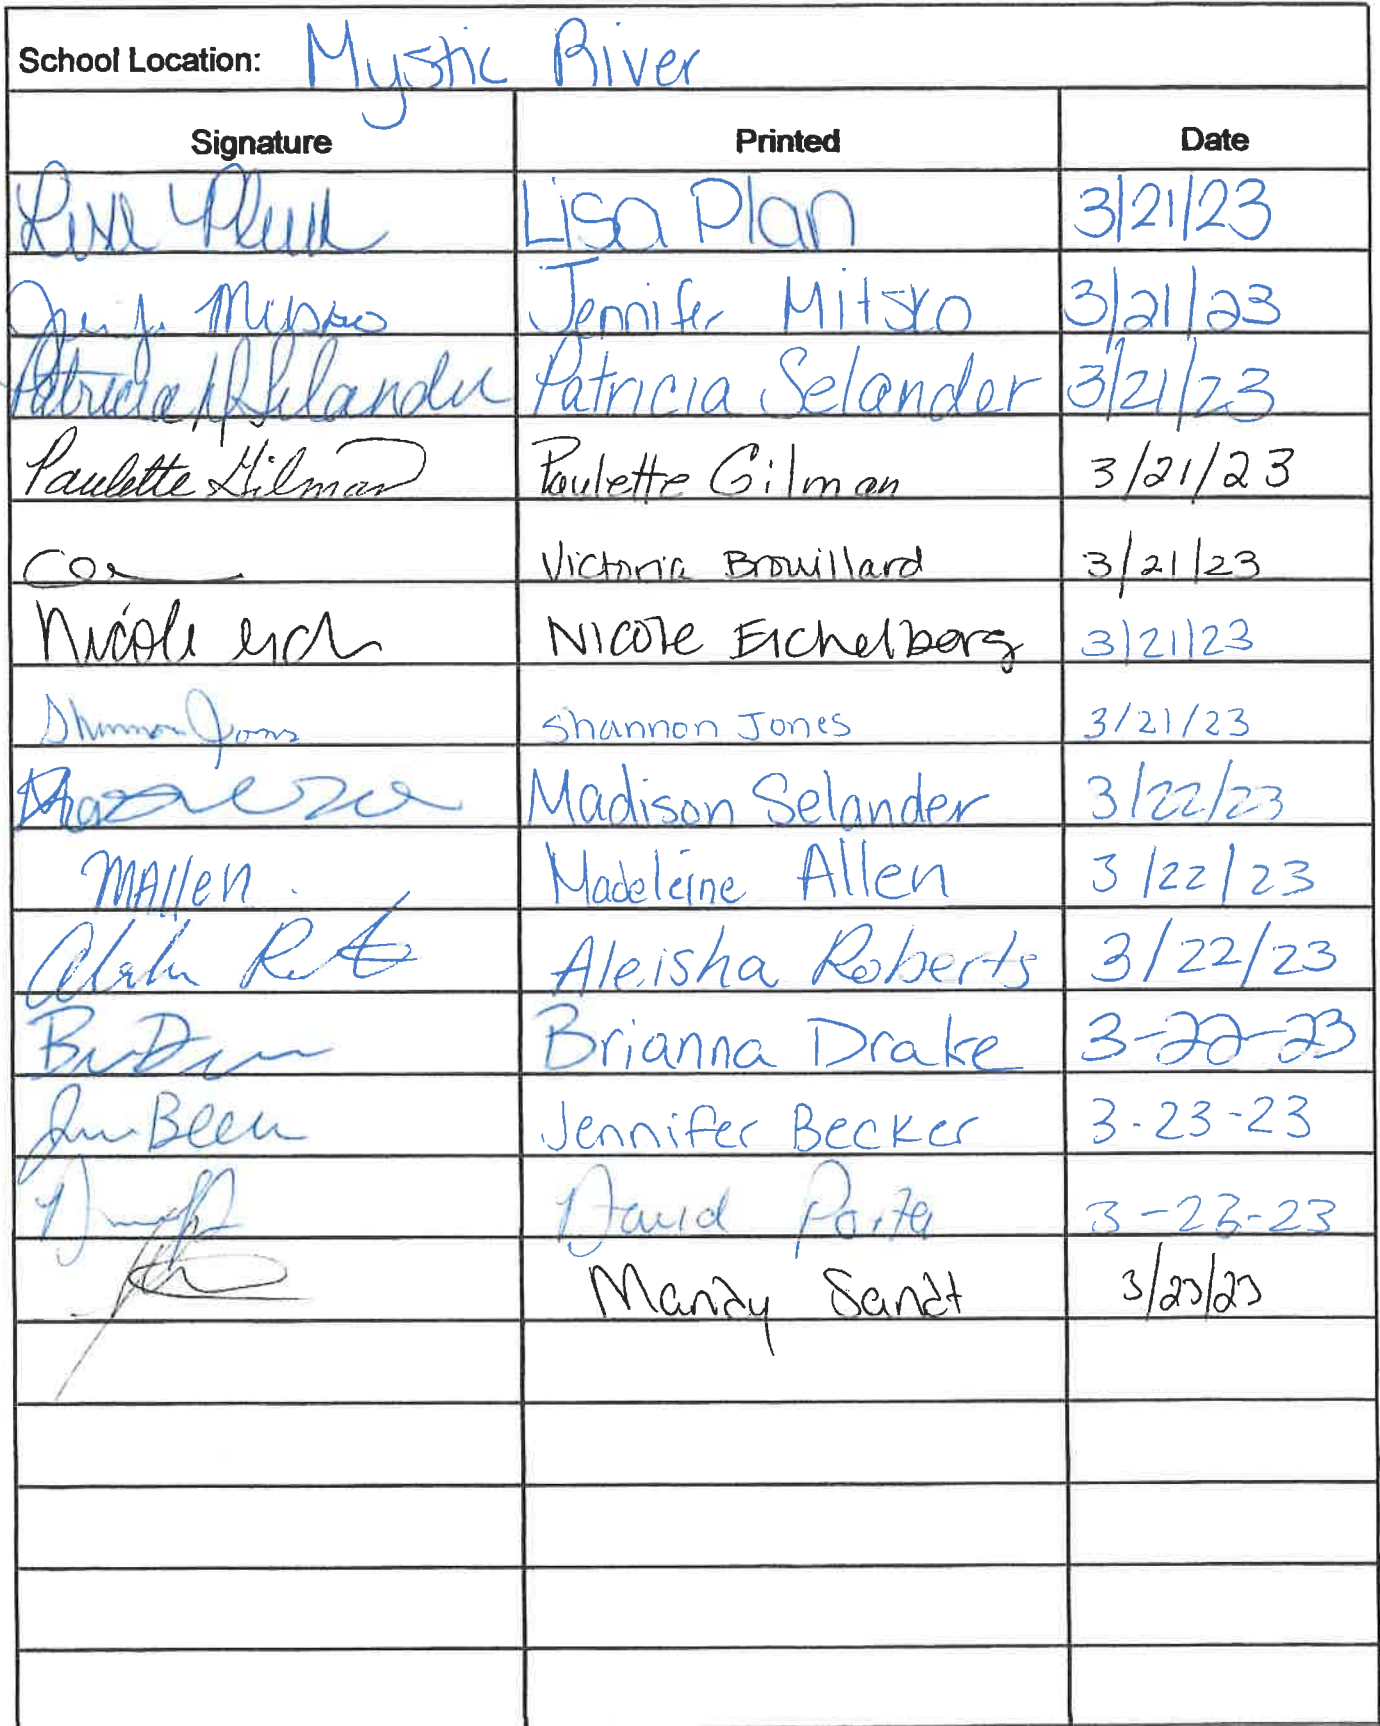 School Location: Mystic River
Signature Printed Date
Lisa Plan 3/21/23
Jennifer Mitsko 3/21/23
Patricia Selander Patricia Selander 3/21/23
Paulette Gilman Paulette Gilman 3/21/23
Victoria Brouillard 3/21/23
Nicole Nicole Eichelberg 3/21/23
Shannon Jones Shannon Jones 3/21/23
Madison Selander 3/22/23
MAllen Madeleine Allen 3/22/23
Aleisha Roberts 3/22/23
Brianna Drake 3-22-23
Jennifer Becker 3-23-23
David Porter 3-23-23
Mandy Sandt 3/23/23